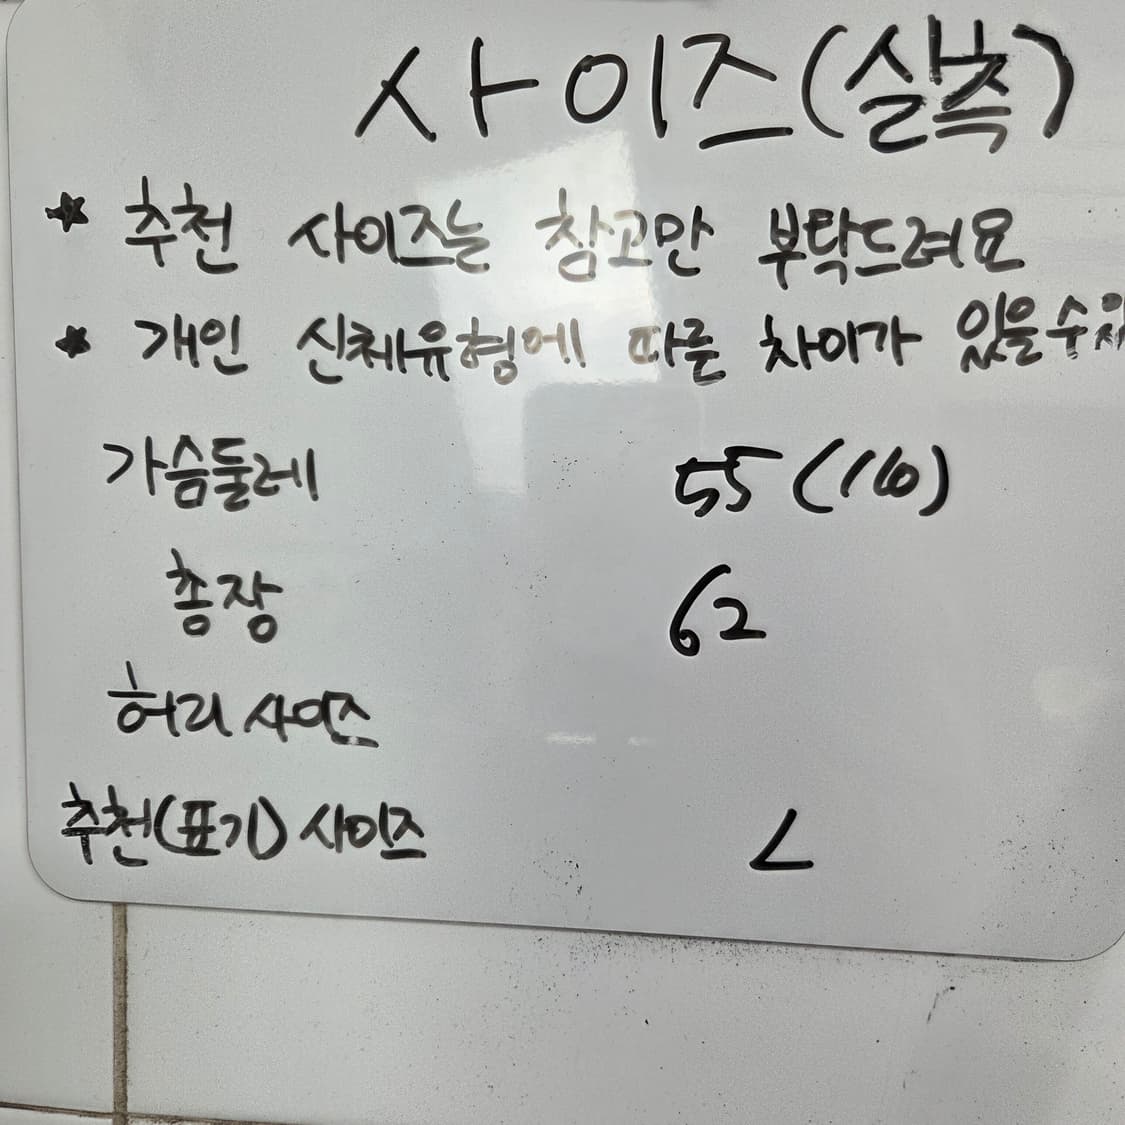 사이즈(실측)
★ 추천 사이즈는 참고만 부탁드려요
★ 개인 신체유형에 따른 차이가 있을수
가슴둘레 55(110)
총장 62
허리 사이즈
추천(표기) 사이즈 L